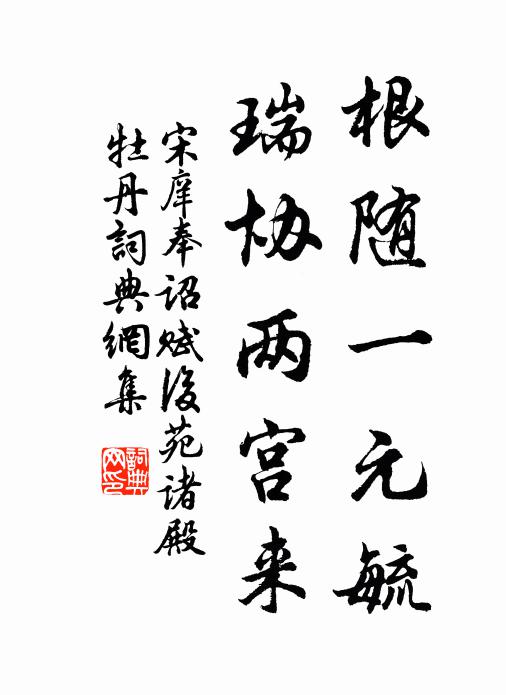 根随一元毓
瑞协两宫来
宋庠奉诏赋後苑诸殿
牡丹詞典網集
詞典网印